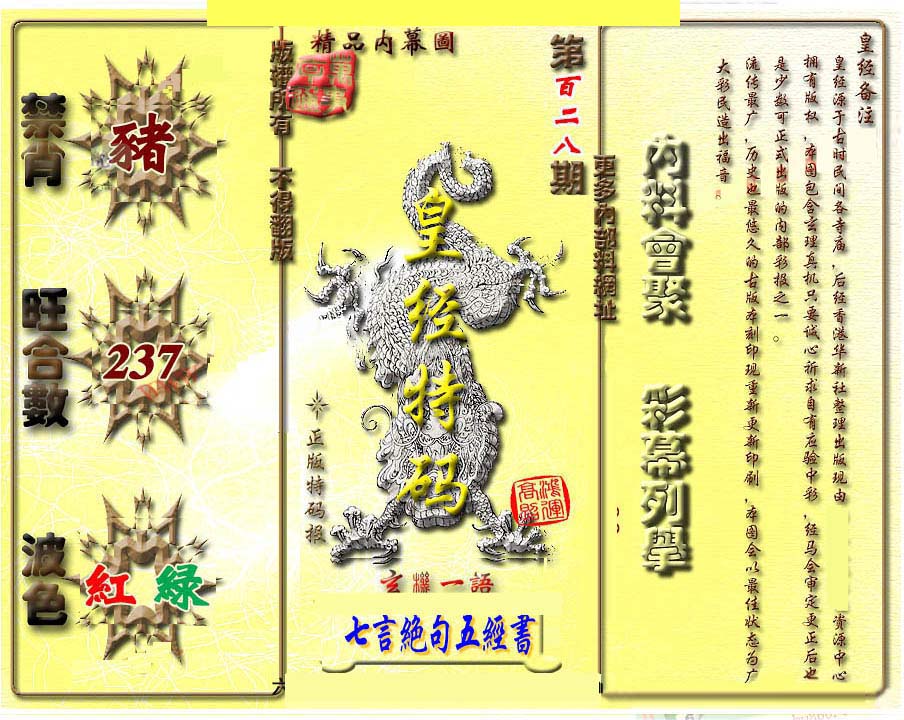 精品内幕圖
第百二八期
版權所有 不得翻版
更多内部料網址
禁肖
豬
旺合數
237
波色
紅 綠
皇经特码
正版特码报
鴻運高照
玄機一語
七言絶句五經書
内料會聚
彩幕列學
皇经备注
皇经源于古时民间各寺庙,后经香港华新社整理出版现由
资源中心
拥有版权,本图包含玄理真机只要诚心祈求自有应验中彩,经马会审定更正后也
是少数可正式出版的内部彩报之一。
流传最广,历史也最悠久的古版本刻印现重新更新印刷,本图会以最佳状态为广
大彩民造出福音